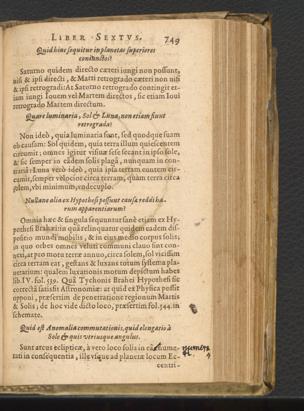 LIBER SEXTVS. 749
Quid hinc sequitur in planetas superiores
coniunctos?
Saturno quidem directo cæteri iungi non possunt,
nisi & ipsi directi, & Marti retrogrado cæteri non nisi
& ipsi retrogradi: At Saturno retrogrado contingit et-
iam iungi Iouem vel Martem directos, sic etiam Ioui
retrogrado Martem directum.
Quare luminaria, Sol & Luna, non etiam fiunt
retrograda?
Non ideò, quia luminaria sunt, sed quodque suam
ob causam: Sol quidem, quia terra illum quiescentem
circumit; omnes igitur visus sese secant in ipso sole,
& sic semper in eâdem solis plagâ, nunquam in con-
traria: Luna verò ideò, quia ipsa terram euntem cir-
cumit, semper velocior circa terram, quàm terra circa
Solem, vbi minimum,
Nullane alia ex Hypothesi possunt causa reddi ha-
rum apparentiarum?
Omnia hæc & singula sequuntur sanè etiam ex Hy-
pothesi Braheî in quâ relinquatur quidem eadem dis-
positio mundi mobilis, & in eius medio corpus solis;
in quo orbes omnes velut communi clauo sint con-
nexi, at pro motu terræ annuo, circa solem, sol vicissim
circa terram eat, gestans & luxans totum systema pla-
netarium: qualem luxationis motum depictum habes
lib. IV. fol. 539. Quâ Tychonis Brahei Hypothesi sic
correctâ satisfit Astronomiæ: at quid ex Physica possit
opponi, præsertim de penetratione regionum Martis
& Solis; de hoc vide dicto loco, præsertim fol. 544. in
schemate.
Quid est Anomalia commutationis, quid elongatio à
Sole & quis veriusque angulus.
Sunt arcus eclipticæ, à vero loco solis in
tati in consequentia, ille vsque ad planetæ locum Ec-
centri-